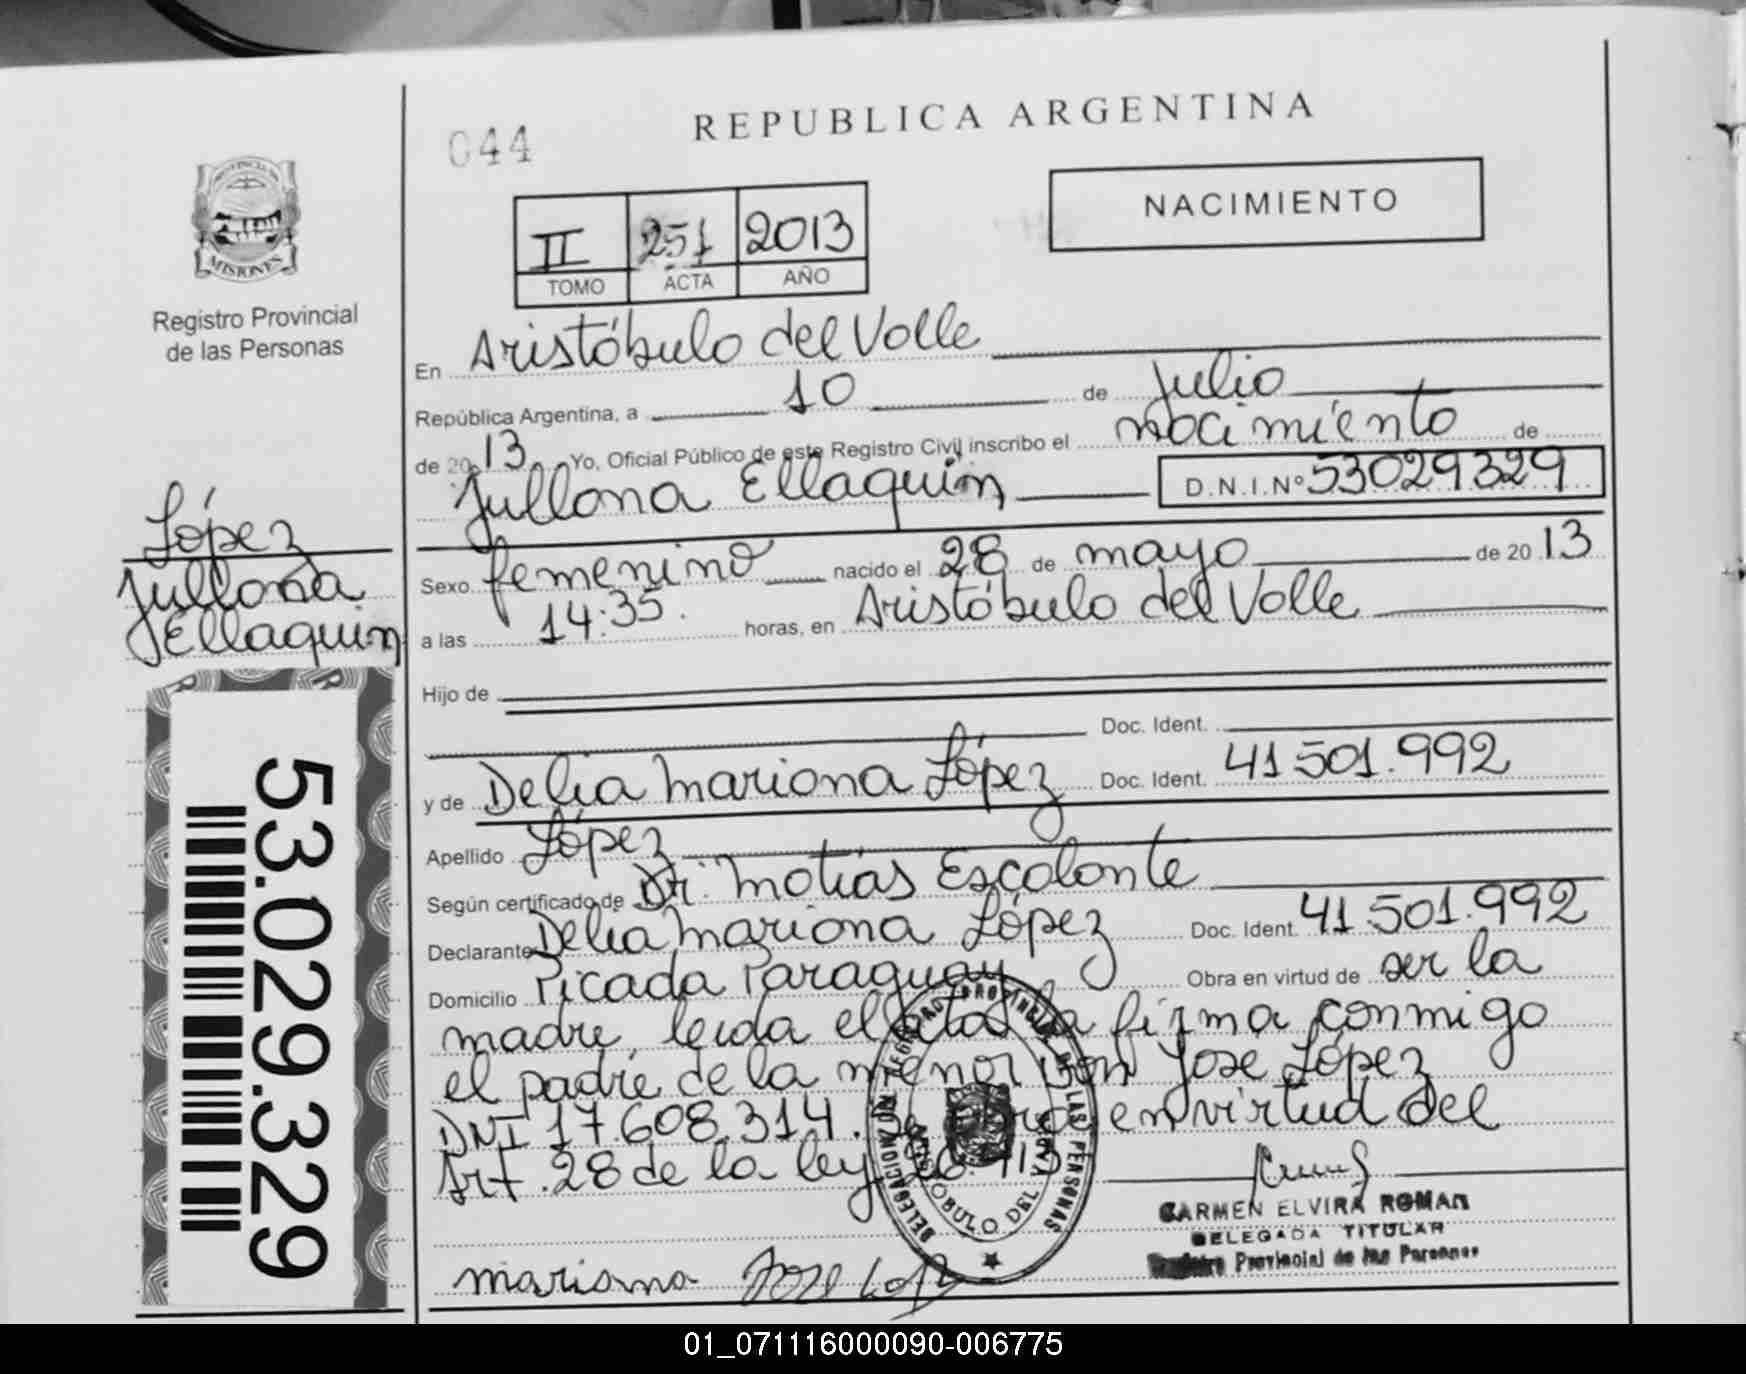 REPUBLICA ARGENTINA
044
NACIMIENTO
PROVINCIA DE
MISIONES
II 251 2013
TOMO ACTA AÑO
Registro Provincial
de las Personas
En Aristóbulo del Valle
República Argentina, a 10 de julio
de 2013 Yo, Oficial Público de este Registro Civil inscribo el nacimiento de
Jullana Ellaquin D.N.I.Nº 53029329
López
Jullana
Ellaquin
Sexo femenino nacido el 28 de mayo de 2013
a las 14:35. horas, en Aristóbulo del Valle
Hijo de
Doc. Ident.
y de Delia Mariana López Doc. Ident. 41.501.992
Apellido López
Según certificado de Dr. Matías Escalante
Declarante Delia Mariana López Doc. Ident. 41.501.992
Domicilio Picada Paraguay Obra en virtud de ser la
madre, leída el acta la firma conmigo
el padre de la menor Don Jose López
DNI 17.608.314. en virtud del
Art. 28 de la ley 26.413
53.029.329
DELEGACION REGISTRO PROVINCIAL DE LAS PERSONAS
ARISTOBULO DEL VALLE
CARMEN ELVIRA ROMAN
DELEGADA TITULAR
Registro Provincial de las Personas
mariana Jose López
01_071116000090-006775